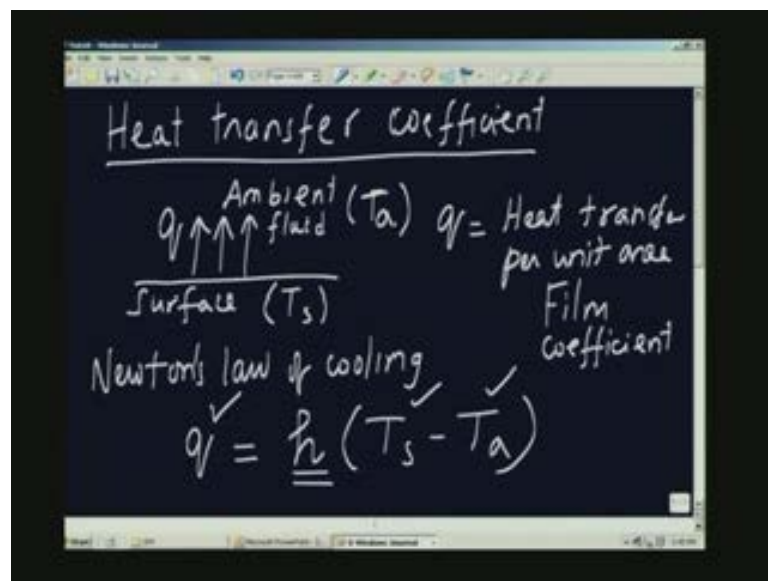 Heat transfer coefficient
Ambient
fluid (Ta)
q
Surface (Ts)
q = Heat transfer
per unit area
Film
coefficient
Newton's law of cooling
q = h (Ts - Ta)